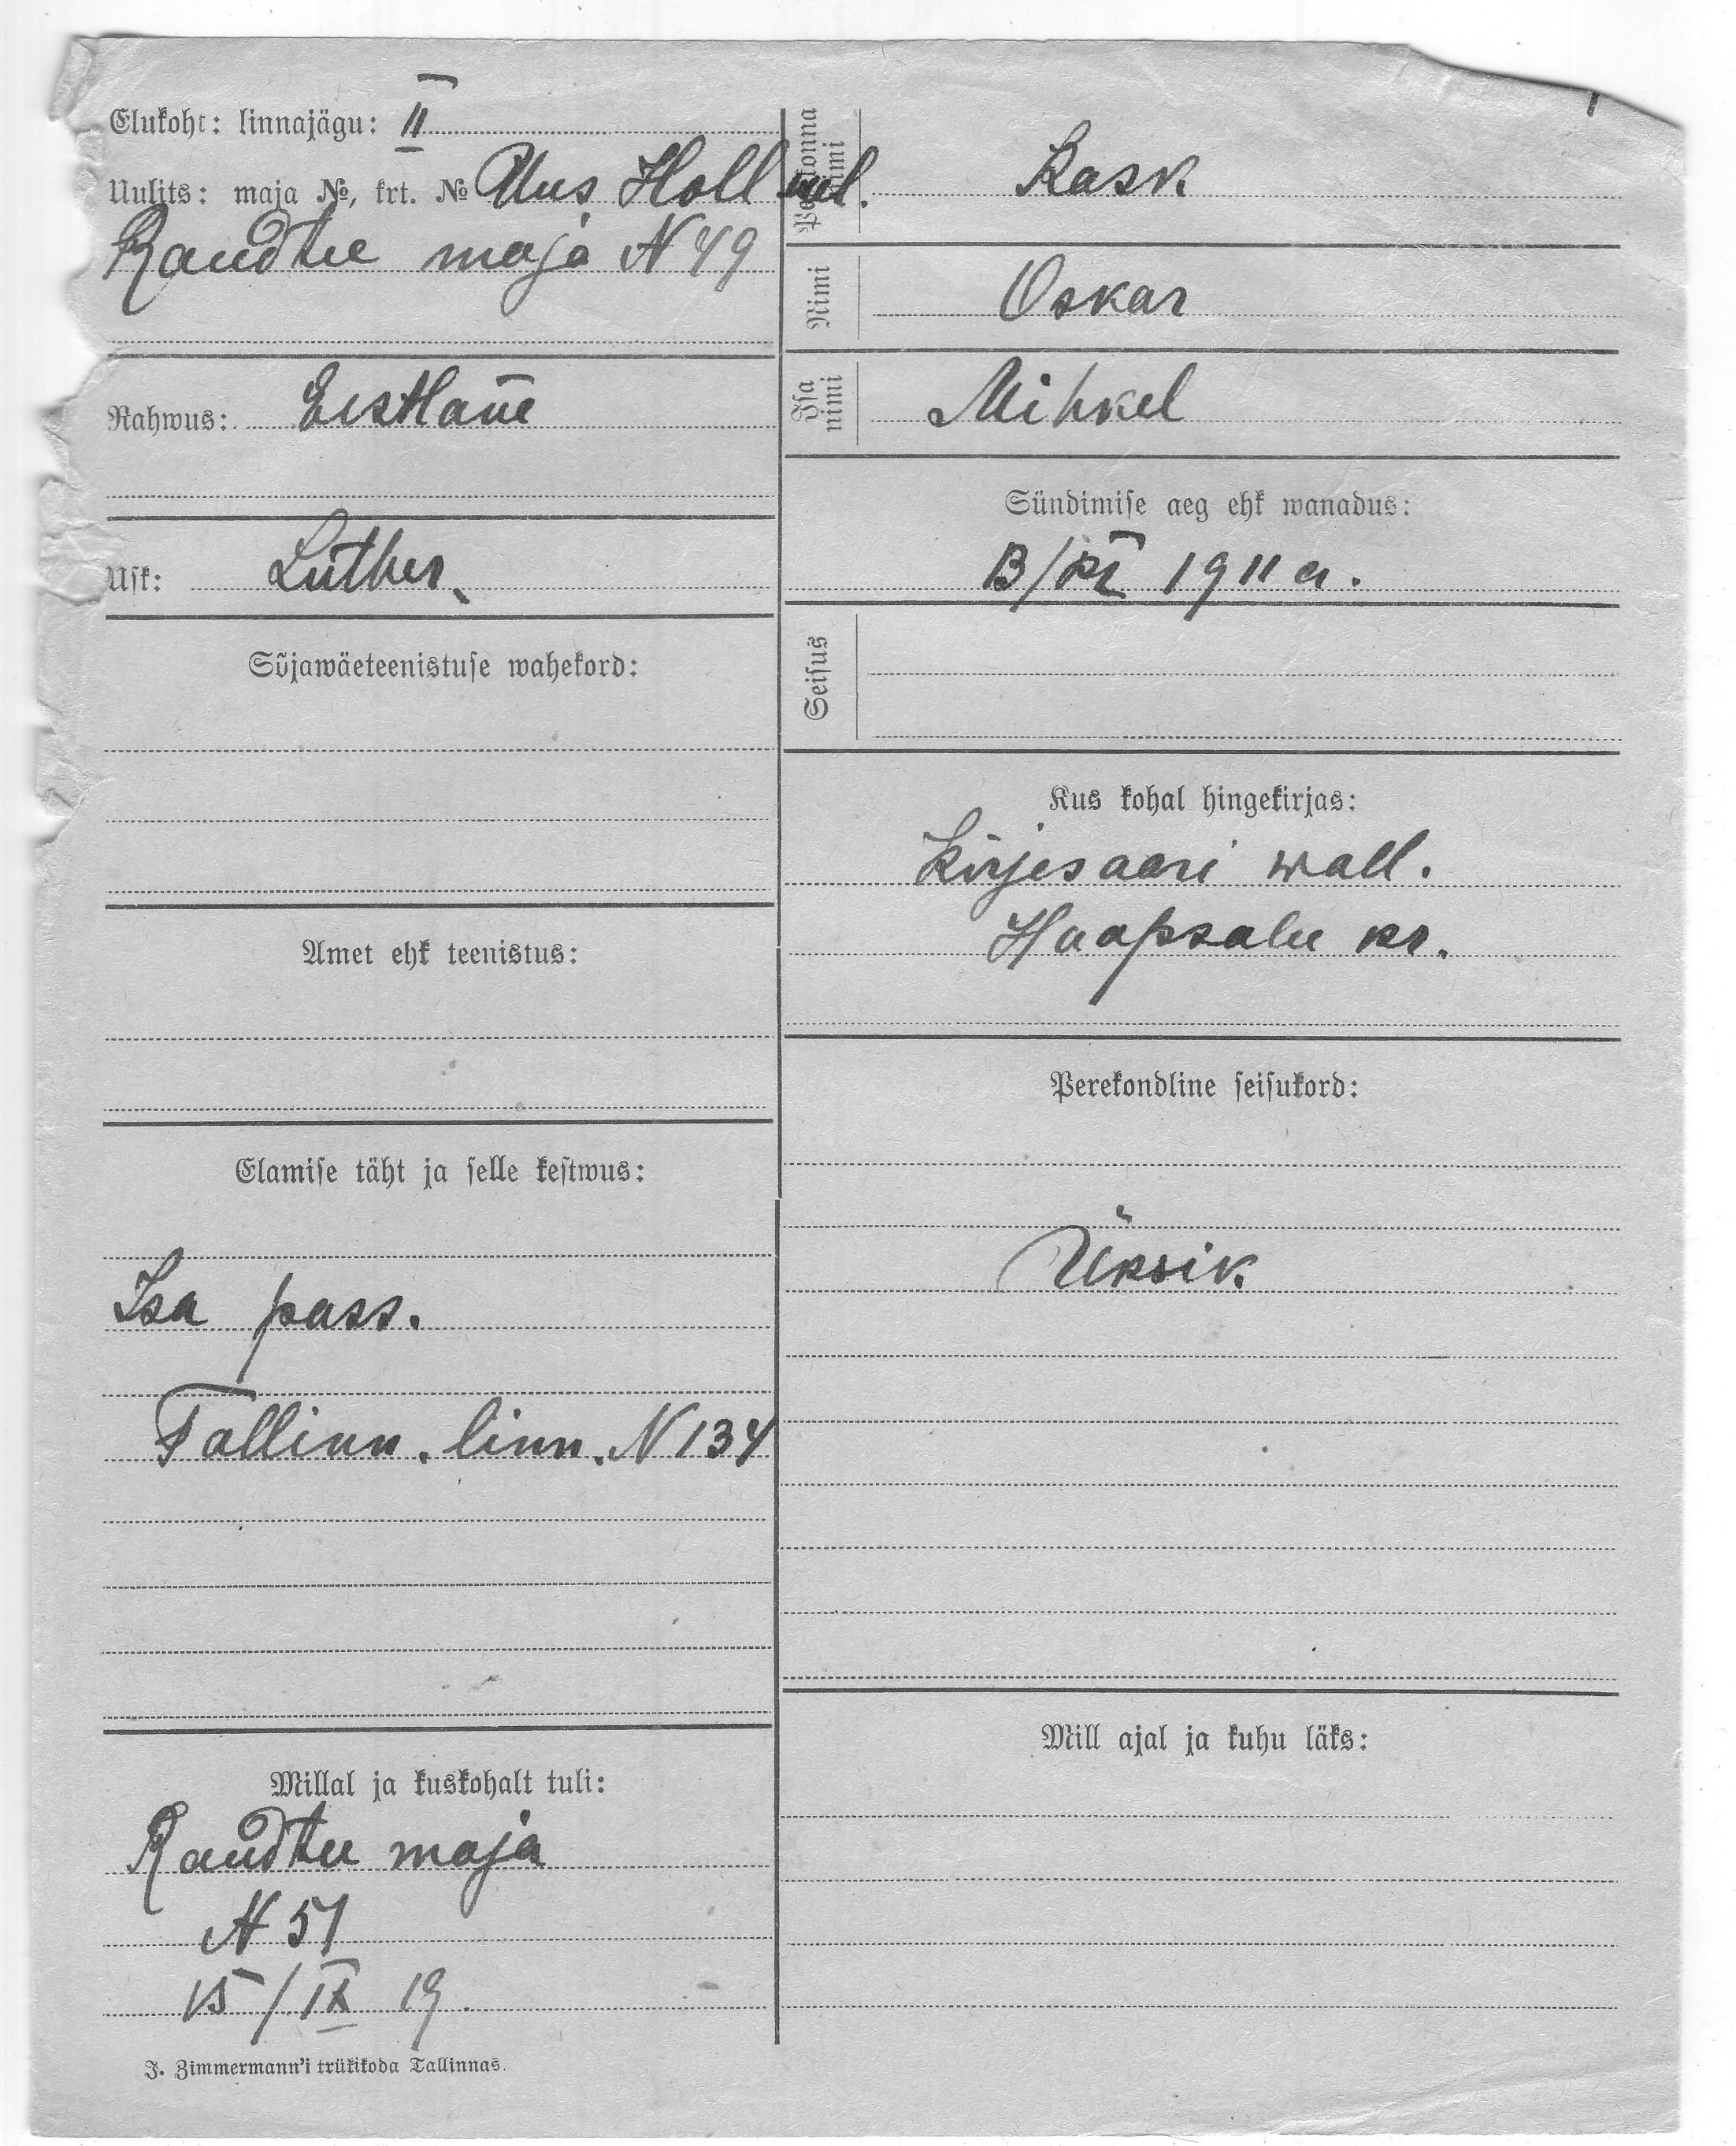 Elukoht: linnajägu: II
Uulits: maja №, krt. № Uus Holl uul.
Raudtee maja N 49
Rahwus: Eestlane
Usk: Luther.
Sõjawäeteenistuse wahekord:
Amet ehk teenistus:
Elamise täht ja selle kestwus:
Isa pass.
Tallinn. linn. N 134
Millal ja kuskohalt tuli:
Raudtee maja
N 51
15/IX 19.
J. Zimmermann'i trükikoda Tallinnas.
Perekonna nimi Kask
Nimi Oskar
Isa nimi Mihkel
Sündimise aeg ehk wanadus:
1911 a.
Seisus
Kus kohal hingekirjas:
wall.
Haapsalu kr.
Perekondline seisukord:
Üksik.
Mill ajal ja kuhu läks: